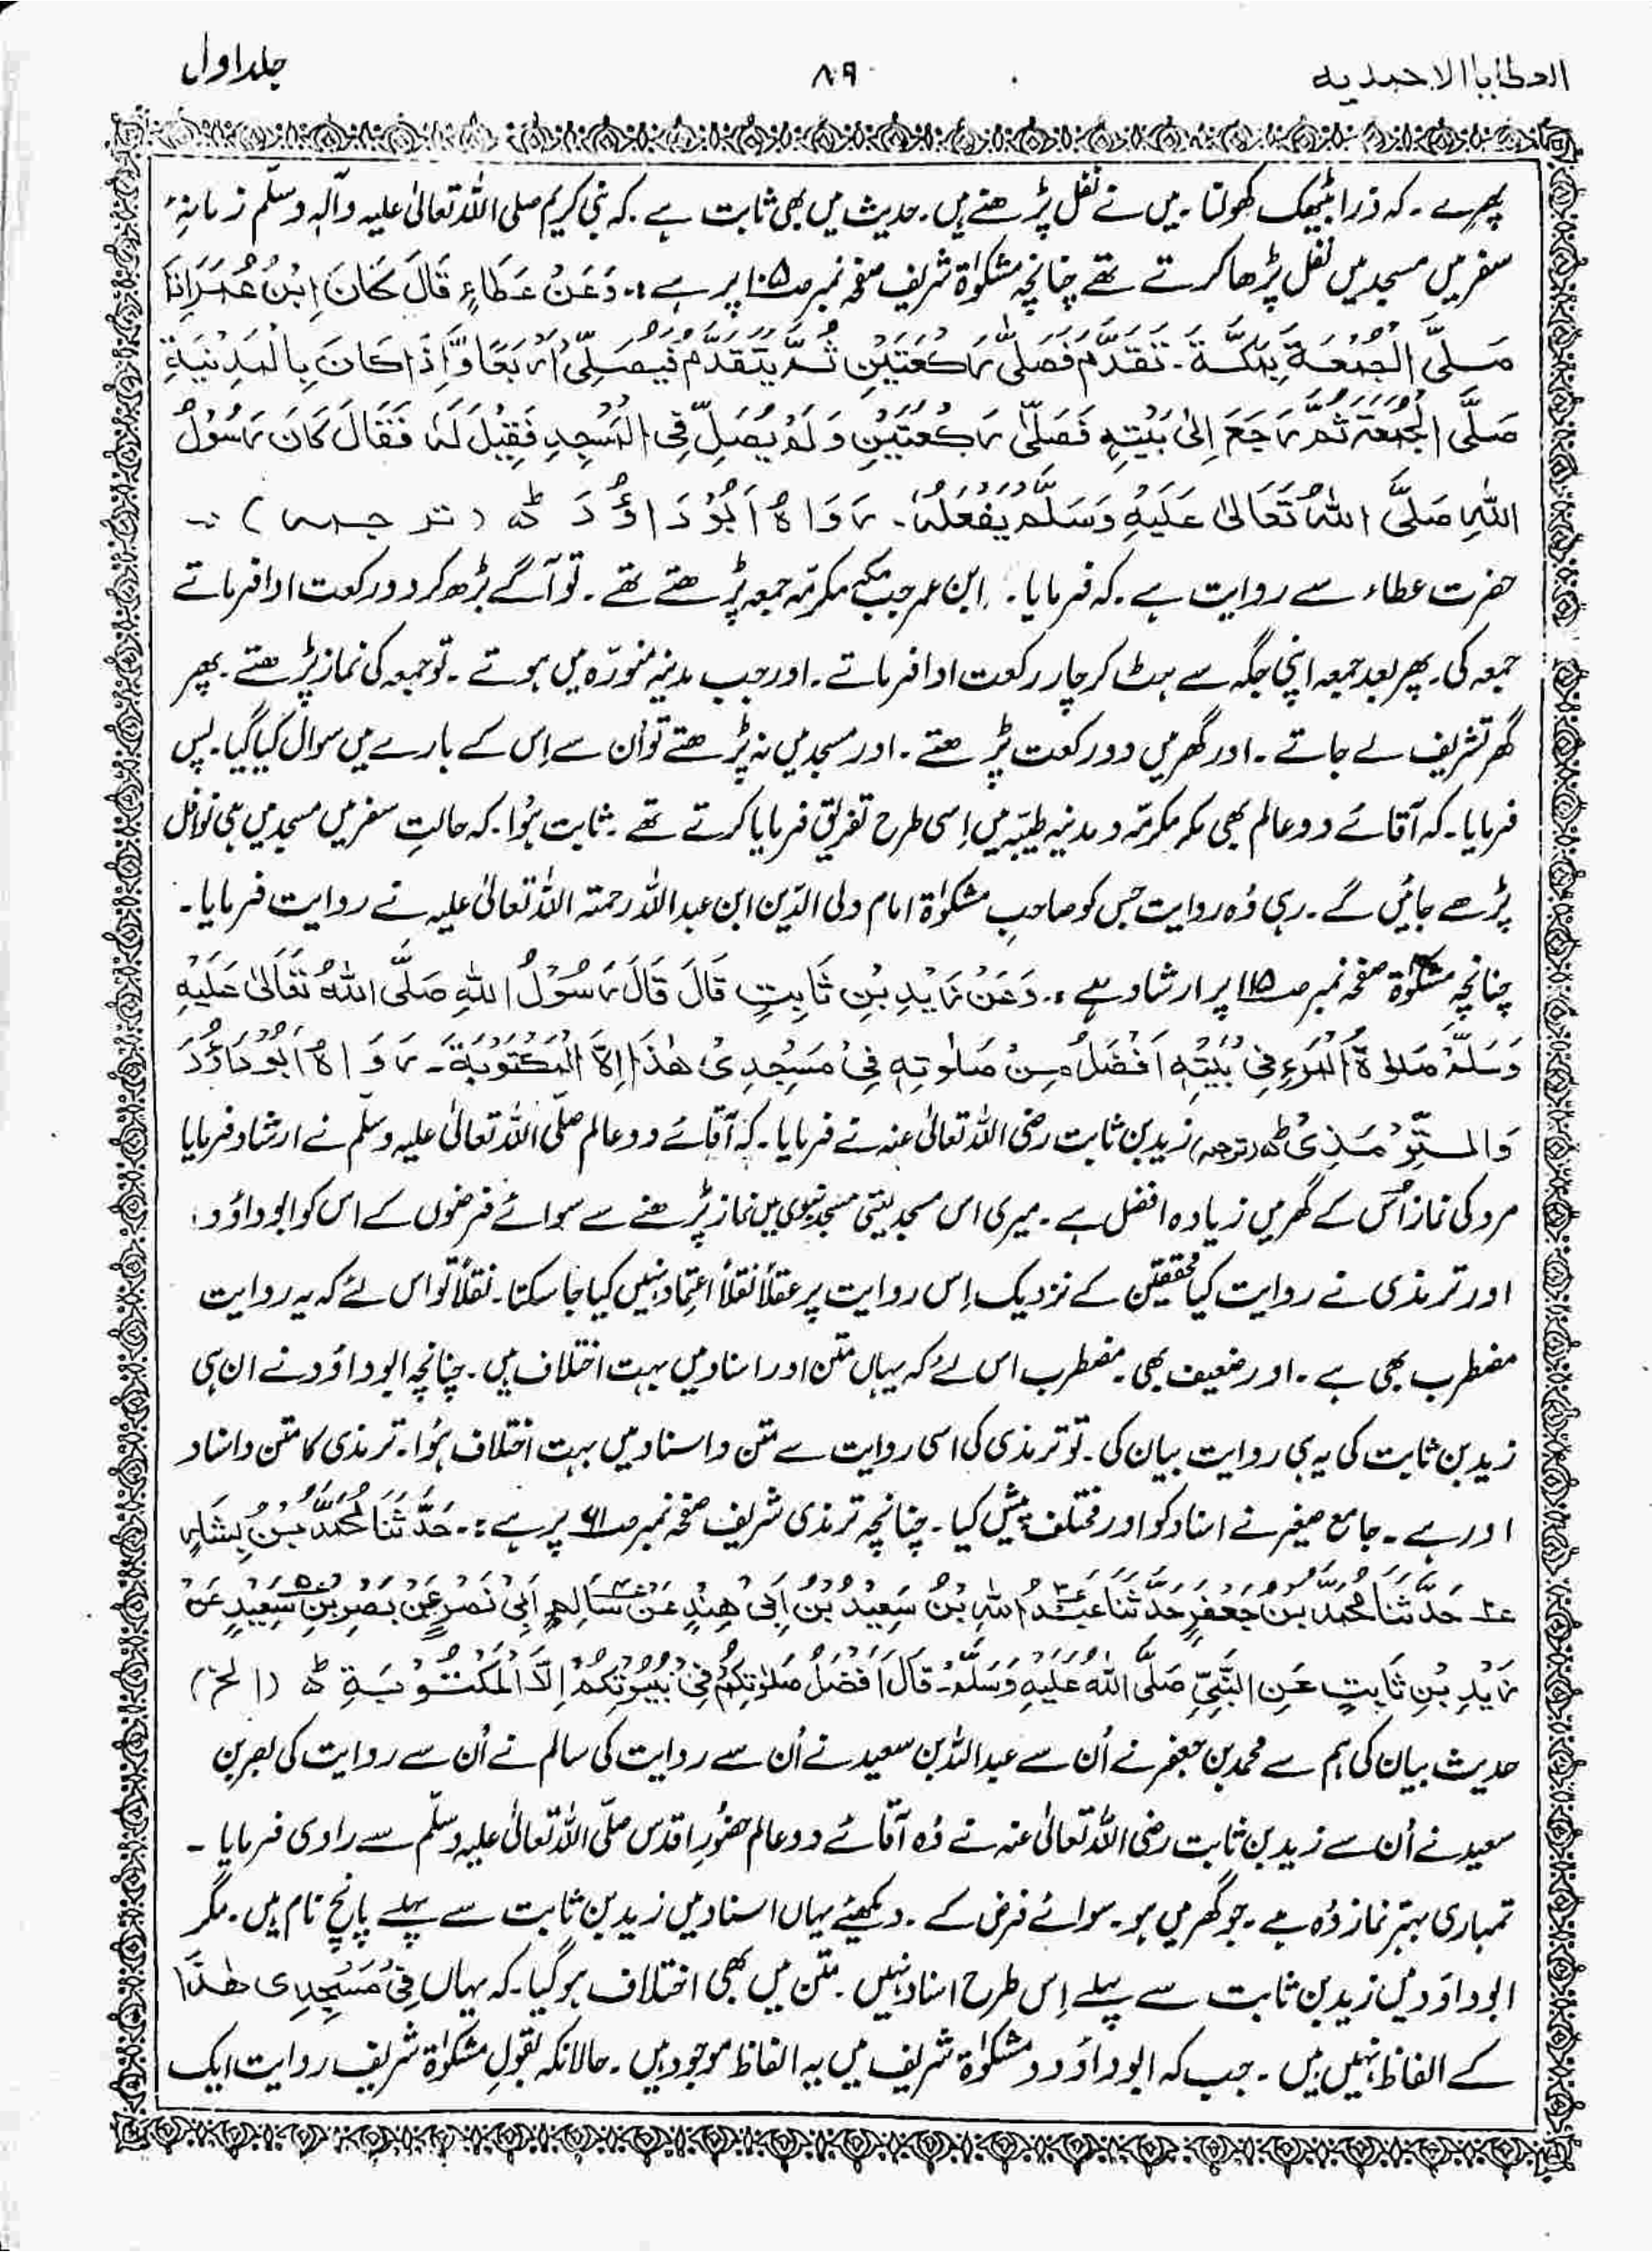 العطایا الاحمدیه ۸۹ جلد اول
پھرے ۔ کہ ذرا بیٹھک کھولنا ۔ میں نے نفل پڑھنے ہیں ۔ حدیث میں بھی ثابت ہے ۔ کہ نبی کریم صلی اللہ تعالیٰ علیہ وآلہٖ وسلّم زمانۂ
سفر میں مسجد میں نفل پڑھا کرتے تھے چنانچہ مشکوٰۃ شریف صفحہ نمبر صـ۱۰۵ پر ہے :۔ وَعَنْ عَطَاءٍ قَالَ كَانَ اِبْنُ عُمَرَ اِذَا
صَلَّى الْجُمُعَةَ بِمَكَّةَ ۔ تَقَدَّمَ فَصَلّٰى رَكْعَتَيْنِ ثُمَّ يَتَقَدَّمُ فَيُصَلِّىْ اَرْبَعًا وَّاِذَا كَانَ بِالْمَدِيْنَةِ
صَلَّى الْجُمُعَةَ ثُمَّ رَجَعَ اِلىٰ بَيْتِهٖ فَصَلّٰى رَكْعَتَيْنِ وَلَمْ يُصَلِّ فِى الْمَسْجِدِ فَقِيْلَ لَهٗ فَقَالَ كَانَ رَسُوْلُ
اللّٰهِ صَلَّى اللّٰهُ تَعَالىٰ عَلَيْهِ وَسَلَّمَ يَفْعَلُهٗ ۔ رَوَاهُ اَبُوْدَاؤُدَ ؕ (ترجمہ) :۔
حضرت عطاء سے روایت ہے ۔ کہ فرمایا ۔ ابن عمر جب مکہ مکرمّہ جمعہ پڑھتے تھے ۔ تو آگے بڑھ کر دو رکعت ادا فرماتے
جمعہ کی ۔ پھر بعد جمعہ اپنی جگہ سے ہٹ کر چار رکعت ادا فرماتے ۔ اور جب مدینہ منورّہ میں ہوتے ۔ تو جمعہ کی نماز پڑھتے ۔ پھر
گھر تشریف لے جاتے ۔ اور گھر میں دو رکعت پڑھتے ۔ اور مسجد میں نہ پڑھتے تو اُن سے اِس کے بارے میں سوال کیا گیا ۔ پس
فرمایا ۔ کہ آقائے دو عالم بھی مکہ مکرمّہ و مدنیہ طیبّہ میں اِسی طرح تفریق فرمایا کرتے تھے ۔ ثابت ہُوا ۔ کہ حالتِ سفر میں مسجد میں ہی نوافل
پڑھے جائیں گے ۔ رہی وُہ روایت جس کو صاحبِ مشکوٰۃ امام ولی الدّین ابن عبد اللہ رحمتہ اللہ تعالیٰ علیہ نے روایت فرمایا ۔
چنانچہ مشکوٰۃ صفحہ نمبر صـ۱۱۵ پر ارشاد ہے :۔ وَعَنْ زَيْدِ بْنِ ثَابِتٍ قَالَ قَالَ رَسُوْلُ اللّٰهِ صَلَّى اللّٰهُ تَعَالىٰ عَلَيْهِ
وَسَلَّمَ صَلوٰةُ الْمَرْءِ فِىْ بَيْتِهٖ اَفْضَلُ مِنْ صَلٰوتِهٖ فِىْ مَسْجِدِىْ هٰذَا اِلَّا الْمَكْتُوْبَةَ ۔ رَوَاهُ اَبُوْدَاؤُدَ
وَالتِّرْمَذِىُّ ؕ (ترجمہ) زید بن ثابت رضی اللہ تعالیٰ عنہ نے فرمایا ۔ کہ آقائے دو عالم صلّی اللہ تعالیٰ علیہ وسلّم نے ارشاد فرمایا
مرد کی نماز اُس کے گھر میں زیادہ افضل ہے ۔ میری اس مسجد یعنی مسجد نبوی میں نماز پڑھنے سے سوائے فرضوں کے اس کو ابوداؤد
اور ترمذی نے روایت کیا محققین کے نزدیک اِس روایت پر عقلاً نقلاً اعتماد نہیں کیا جا سکتا ۔ نقلاً تو اس لئے کہ یہ روایت
مضطرب بھی ہے ۔ اور ضعیف بھی ۔ مضطرب اس لئے کہ یہاں متن اور اسناد میں بہت اختلاف ہیں ۔ چنانچہ ابوداؤد نے ان ہی
زید بن ثابت کی یہ ہی روایت بیان کی ۔ تو ترمذی کی اسی روایت سے متن و اسناد میں بہت اختلاف ہُوا ۔ ترمذی کا متن و اسناد
اور ہے ۔ جامع صغیر نے اسناد کو اور مختلف پیش کیا ۔ چنانچہ ترمذی شریف صفحہ نمبر صـ۶۱ پر ہے :۔ حَدَّثَنَا مُحَمَّدُ بْنُ بِشَارٍ
۱؎ حَدَّثَنَا مُحَمَّدُ بْنُ جَعْفَرٍ حَدَّثَنَا عَبْدُ اللّٰهِ بْنُ سَعِيْدِ بْنِ اَبِىْ هِنْدٍ عَنْ سَالِمٍ اَبِىْ نَصْرٍ عَنْ بَصْرِ بْنِ سَعِيْدٍ عَنْ
زَيْدِ بْنِ ثَابِتٍ عَنِ النَّبِىِّ صَلَّى اللّٰهُ عَلَيْهِ وَسَلَّمَ ۔ قَالَ اَفْضَلُ صَلٰوتِكُمْ فِىْ بُيُوْتِكُمْ اِلَّا الْمَكْتُوْبَةَ ؕ (الخ)
حدیث بیان کی ہم سے محمد بن جعفر نے اُن سے عبد اللہ بن سعید نے اُن سے روایت کی سالم نے اُن سے روایت کی بصر بن
سعید نے اُن سے زید بن ثابت رضی اللہ تعالیٰ عنہ نے وُہ آقائے دو عالم حضُور اقدس صلّی اللہ تعالیٰ علیہ وسلّم سے راوی فرمایا ۔
تمہاری بہتر نماز وُہ ہے ۔ جو گھر میں ہو ۔ سوائے فرض کے ۔ دیکھئے یہاں اسناد میں زید بن ثابت سے پہلے پانچ نام ہیں ۔ مگر
ابوداؤد میں زید بن ثابت سے پہلے اِس طرح اسناد نہیں ۔ متن میں بھی اختلاف ہو گیا ۔ کہ یہاں فِىْ مَسْجِدِى هٰذَا
کے الفاظ نہیں ہیں ۔ جب کہ ابوداؤد و مشکوٰۃ شریف میں یہ الفاظ موجود ہیں ۔ حالانکہ بقولِ مشکوٰۃ شریف روایت ایک